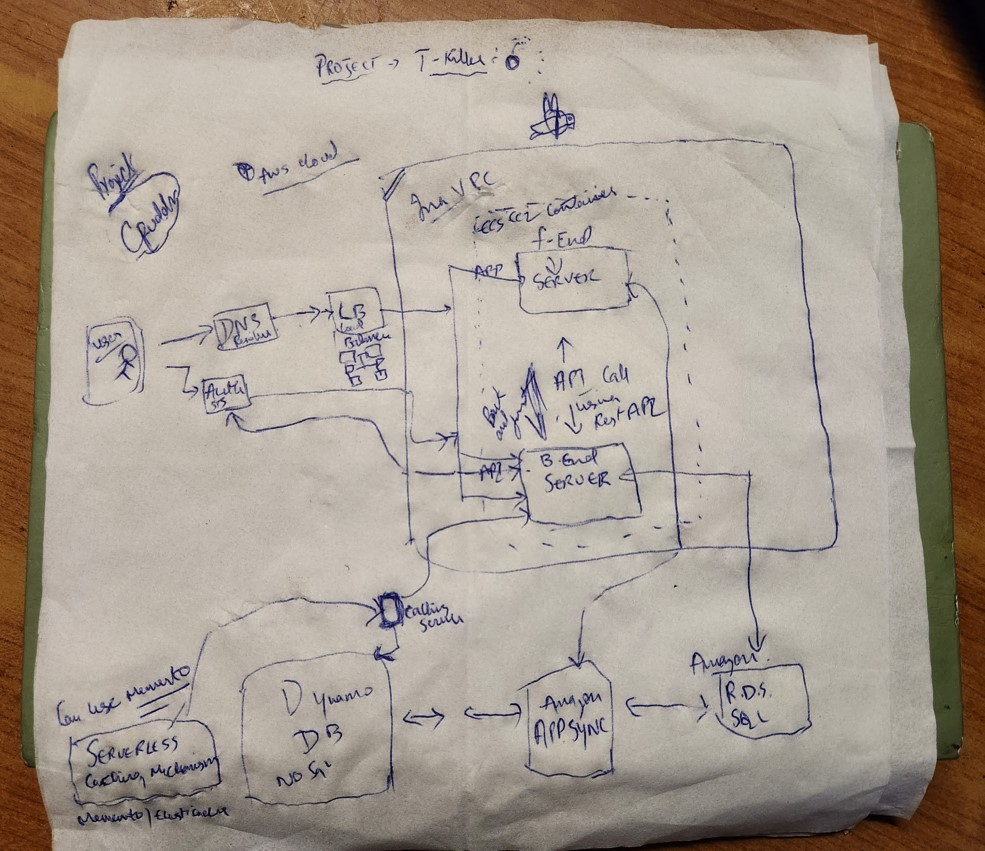 PROJECT → T-Killer :
Project
AWS cloud
In a VPC
ECS EC2 Container
f-End
SERVER
APP
User
DNS
LB
Load
Balancer
Auth
API Call
using
Rest API
API
B-End
SERVER
Calling
Service
Can use Memento
SERVERLESS
Caching Mechanism
Memento/Elasticache
Dynamo
DB
NO SQL
Amazon
APPSYNC
Amazon
R.D.S.
SQL